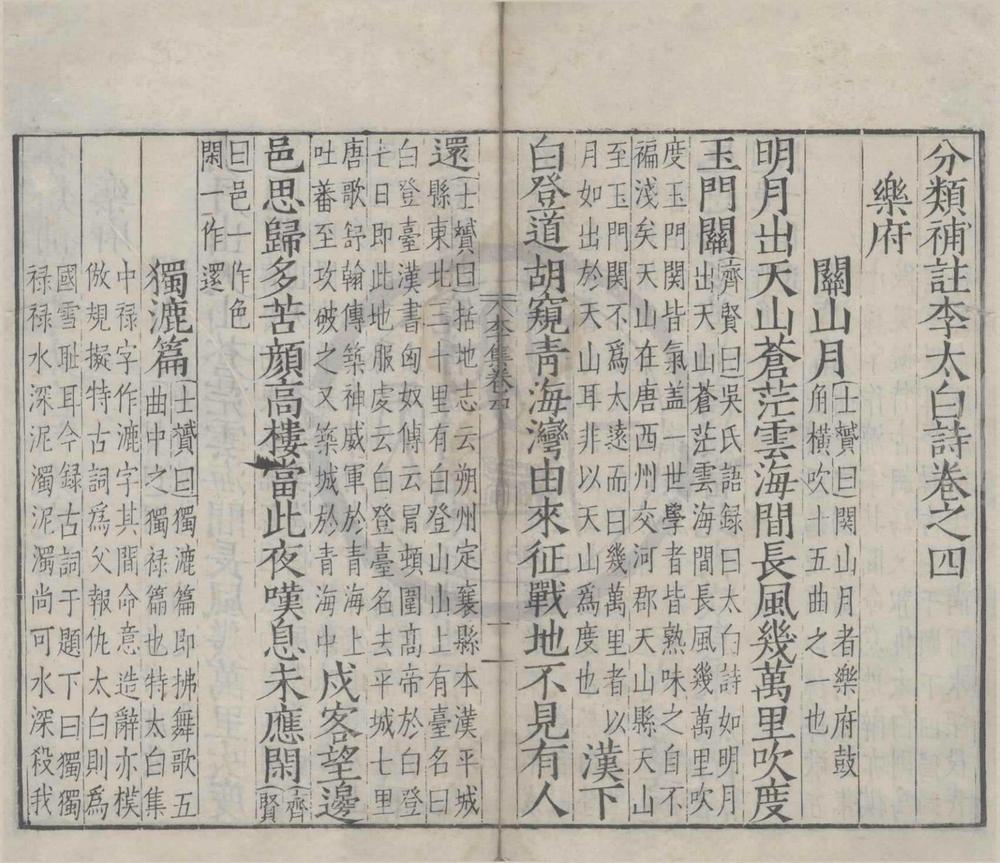 分類補註李太白詩卷之四
樂府
關山月
士贇曰關山月者樂府鼓
角橫吹十五曲之一也
明月出天山蒼茫雲海間長風幾萬里吹度
玉門關
齊賢曰吳氏語録曰太白詩如明月
出天山蒼茫雲海間長風幾萬里吹
度玉門関皆氣盖一世學者皆熟味之自不
褊淺矣天山在唐西州交河郡天山縣天山
至玉門関不爲太遠而曰幾萬里者以
月如出於天山耳非以天山為度也
漢下
白登道胡窺青海灣由來征戰地不見有人
李集卷四
一
還
士贇曰括地志云朔州定襄縣本漢平城
縣東北三十里有白登山山上有臺名曰
白登臺漢書匈奴傳云冒頓圍高帝於白登
七日即此地服虔云白登臺名去平城七里
唐歌舒翰傳築神威軍於青海上
吐蕃至攻破之又築城於青海中
戍客望邊
邑思歸多苦顔高樓當此夜嘆息未應閑
齊賢
曰邑一作色
閑一作還
獨漉篇
士贇曰獨漉篇即拂舞歌五
曲中之獨禄篇也特太白集
中禄字作漉字其間命意造辭亦模
倣規擬特古詞爲父報仇太白則為
國雪耻耳今録古詞于題下曰獨獨
禄禄水深泥濁泥濁尚可水深殺我